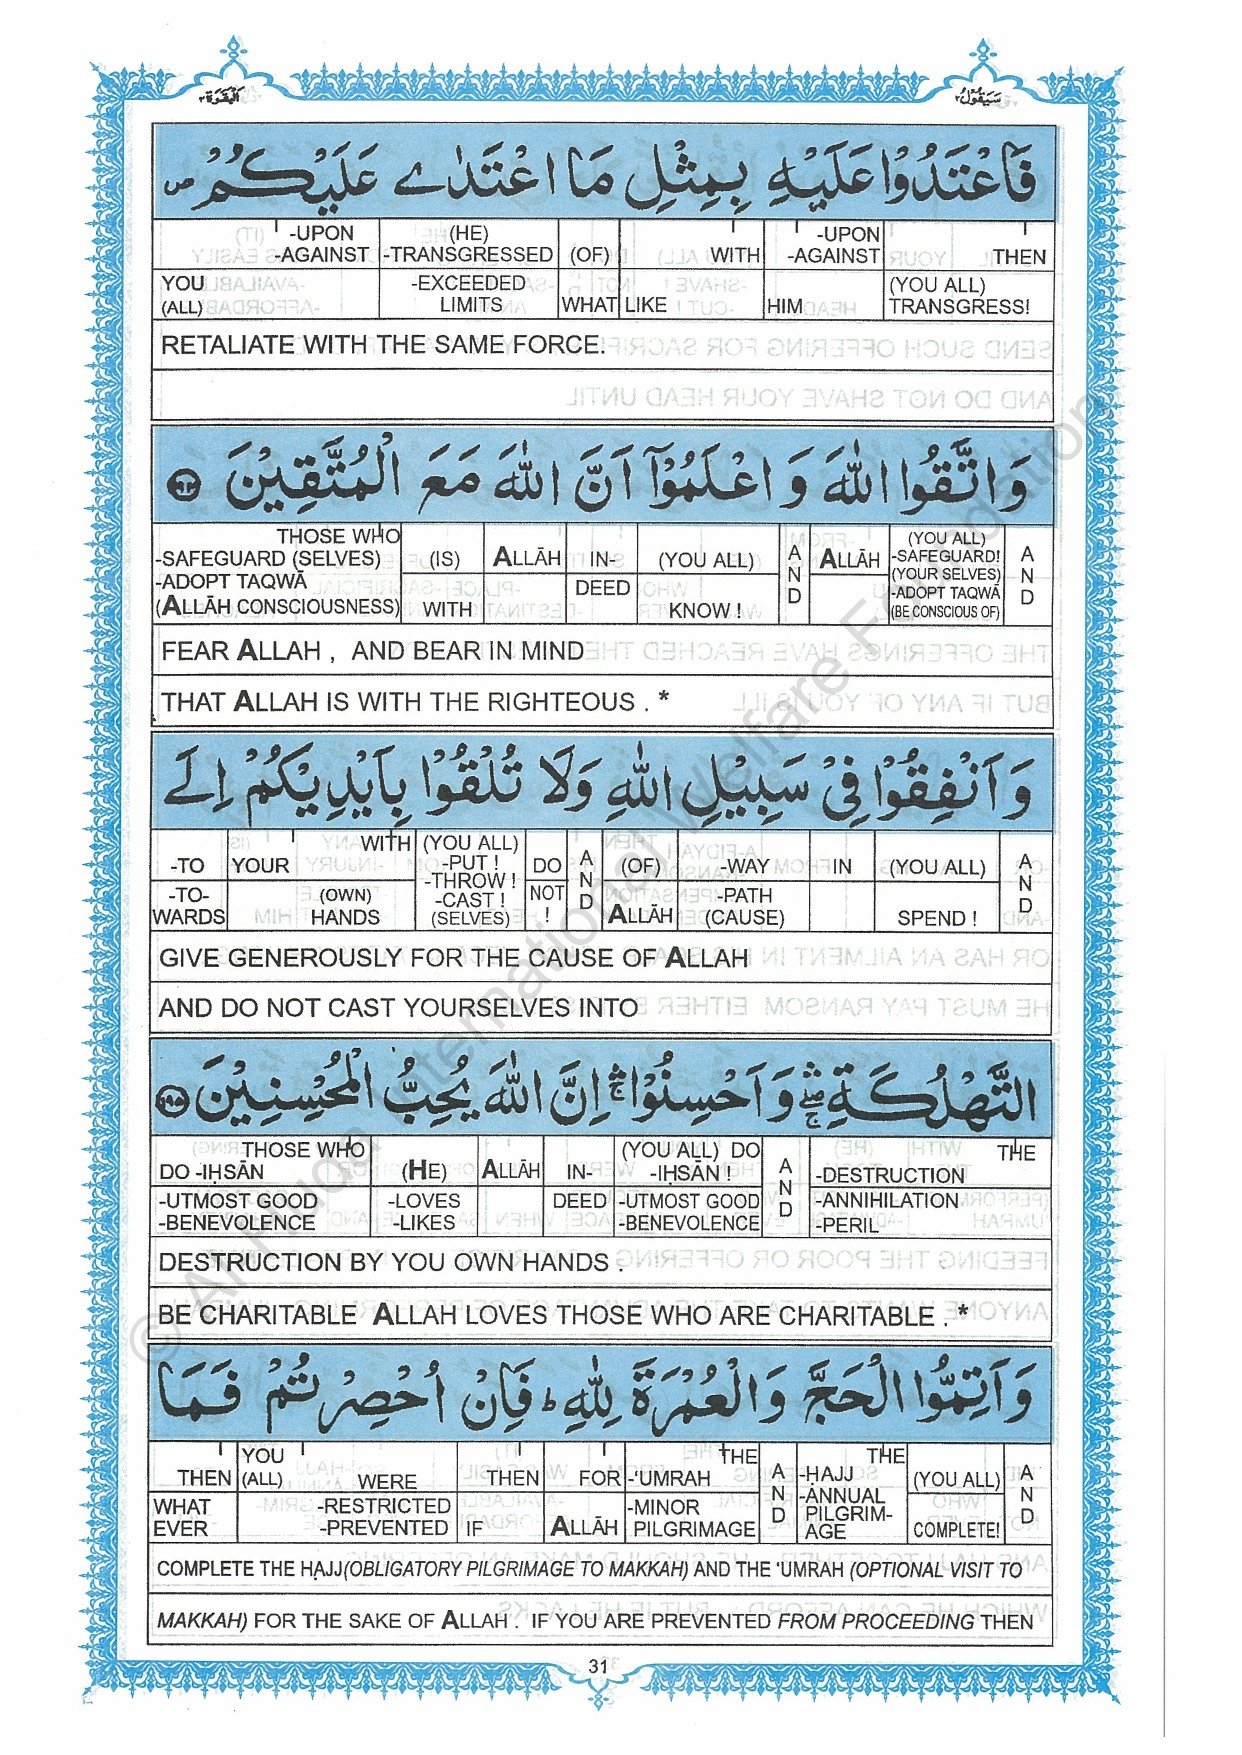 البقرة ٢
سَيَقُولُ ٢
فَاعْتَدُوْا عَلَيْهِ بِمِثْلِ مَا اعْتَدٰے عَلَيْكُمْ ص
-UPON (HE) -UPON
-AGAINST -TRANSGRESSED (OF) WITH -AGAINST THEN
YOU -EXCEEDED (YOU ALL)
(ALL) LIMITS WHAT LIKE HIM TRANSGRESS!
RETALIATE WITH THE SAME FORCE.
وَاتَّقُوا اللّٰهَ وَ اعْلَمُوْٓا اَنَّ اللّٰهَ مَعَ الْمُتَّقِيْنَ ١٩٤
THOSE WHO (YOU ALL)
-SAFEGUARD (SELVES) (IS) ALLĀH IN- (YOU ALL) AND ALLĀH -SAFEGUARD! AND
-ADOPT TAQWĀ DEED (YOUR SELVES)
-ADOPT TAQWĀ
(ALLĀH CONSCIOUSNESS) WITH KNOW ! (BE CONSCIOUS OF)
FEAR ALLAH , AND BEAR IN MIND
THAT ALLAH IS WITH THE RIGHTEOUS . *
وَ اَنْفِقُوْا فِيْ سَبِيْلِ اللّٰهِ وَلَا تُلْقُوْا بِاَيْدِيْكُمْ اِلَے
WITH (YOU ALL)
-TO YOUR -PUT ! DO AND (OF) -WAY IN (YOU ALL) AND
-THROW !
-TO- (OWN) -CAST ! NOT -PATH
WARDS HANDS (SELVES) ! ALLĀH (CAUSE) SPEND !
GIVE GENEROUSLY FOR THE CAUSE OF ALLAH
AND DO NOT CAST YOURSELVES INTO
التَّهْلُكَةِ ۛ وَ اَحْسِنُوْا ۛ اِنَّ اللّٰهَ يُحِبُّ الْمُحْسِنِيْنَ ١٩٥
THOSE WHO (YOU ALL) DO THE
DO -IḤSĀN (HE) ALLĀH IN- -IḤSĀN ! AND -DESTRUCTION
-UTMOST GOOD -LOVES DEED -UTMOST GOOD -ANNIHILATION
-BENEVOLENCE -LIKES -BENEVOLENCE -PERIL
DESTRUCTION BY YOU OWN HANDS .
BE CHARITABLE ALLAH LOVES THOSE WHO ARE CHARITABLE . *
وَ اَتِمُّوا الْحَجَّ وَالْعُمْرَةَ لِلّٰهِ ط فَاِنْ اُحْصِرْتُمْ فَمَا
YOU THE THE
THEN (ALL) WERE THEN FOR -'UMRAH AND -ḤAJJ (YOU ALL) AND
WHAT -RESTRICTED -MINOR -ANNUAL
EVER -PREVENTED IF ALLĀH PILGRIMAGE PILGRIM- COMPLETE!
AGE
COMPLETE THE ḤAJJ(OBLIGATORY PILGRIMAGE TO MAKKAH) AND THE 'UMRAH (OPTIONAL VISIT TO
MAKKAH) FOR THE SAKE OF ALLAH . IF YOU ARE PREVENTED FROM PROCEEDING THEN
31
© Al-Huda International Welfare Foundation